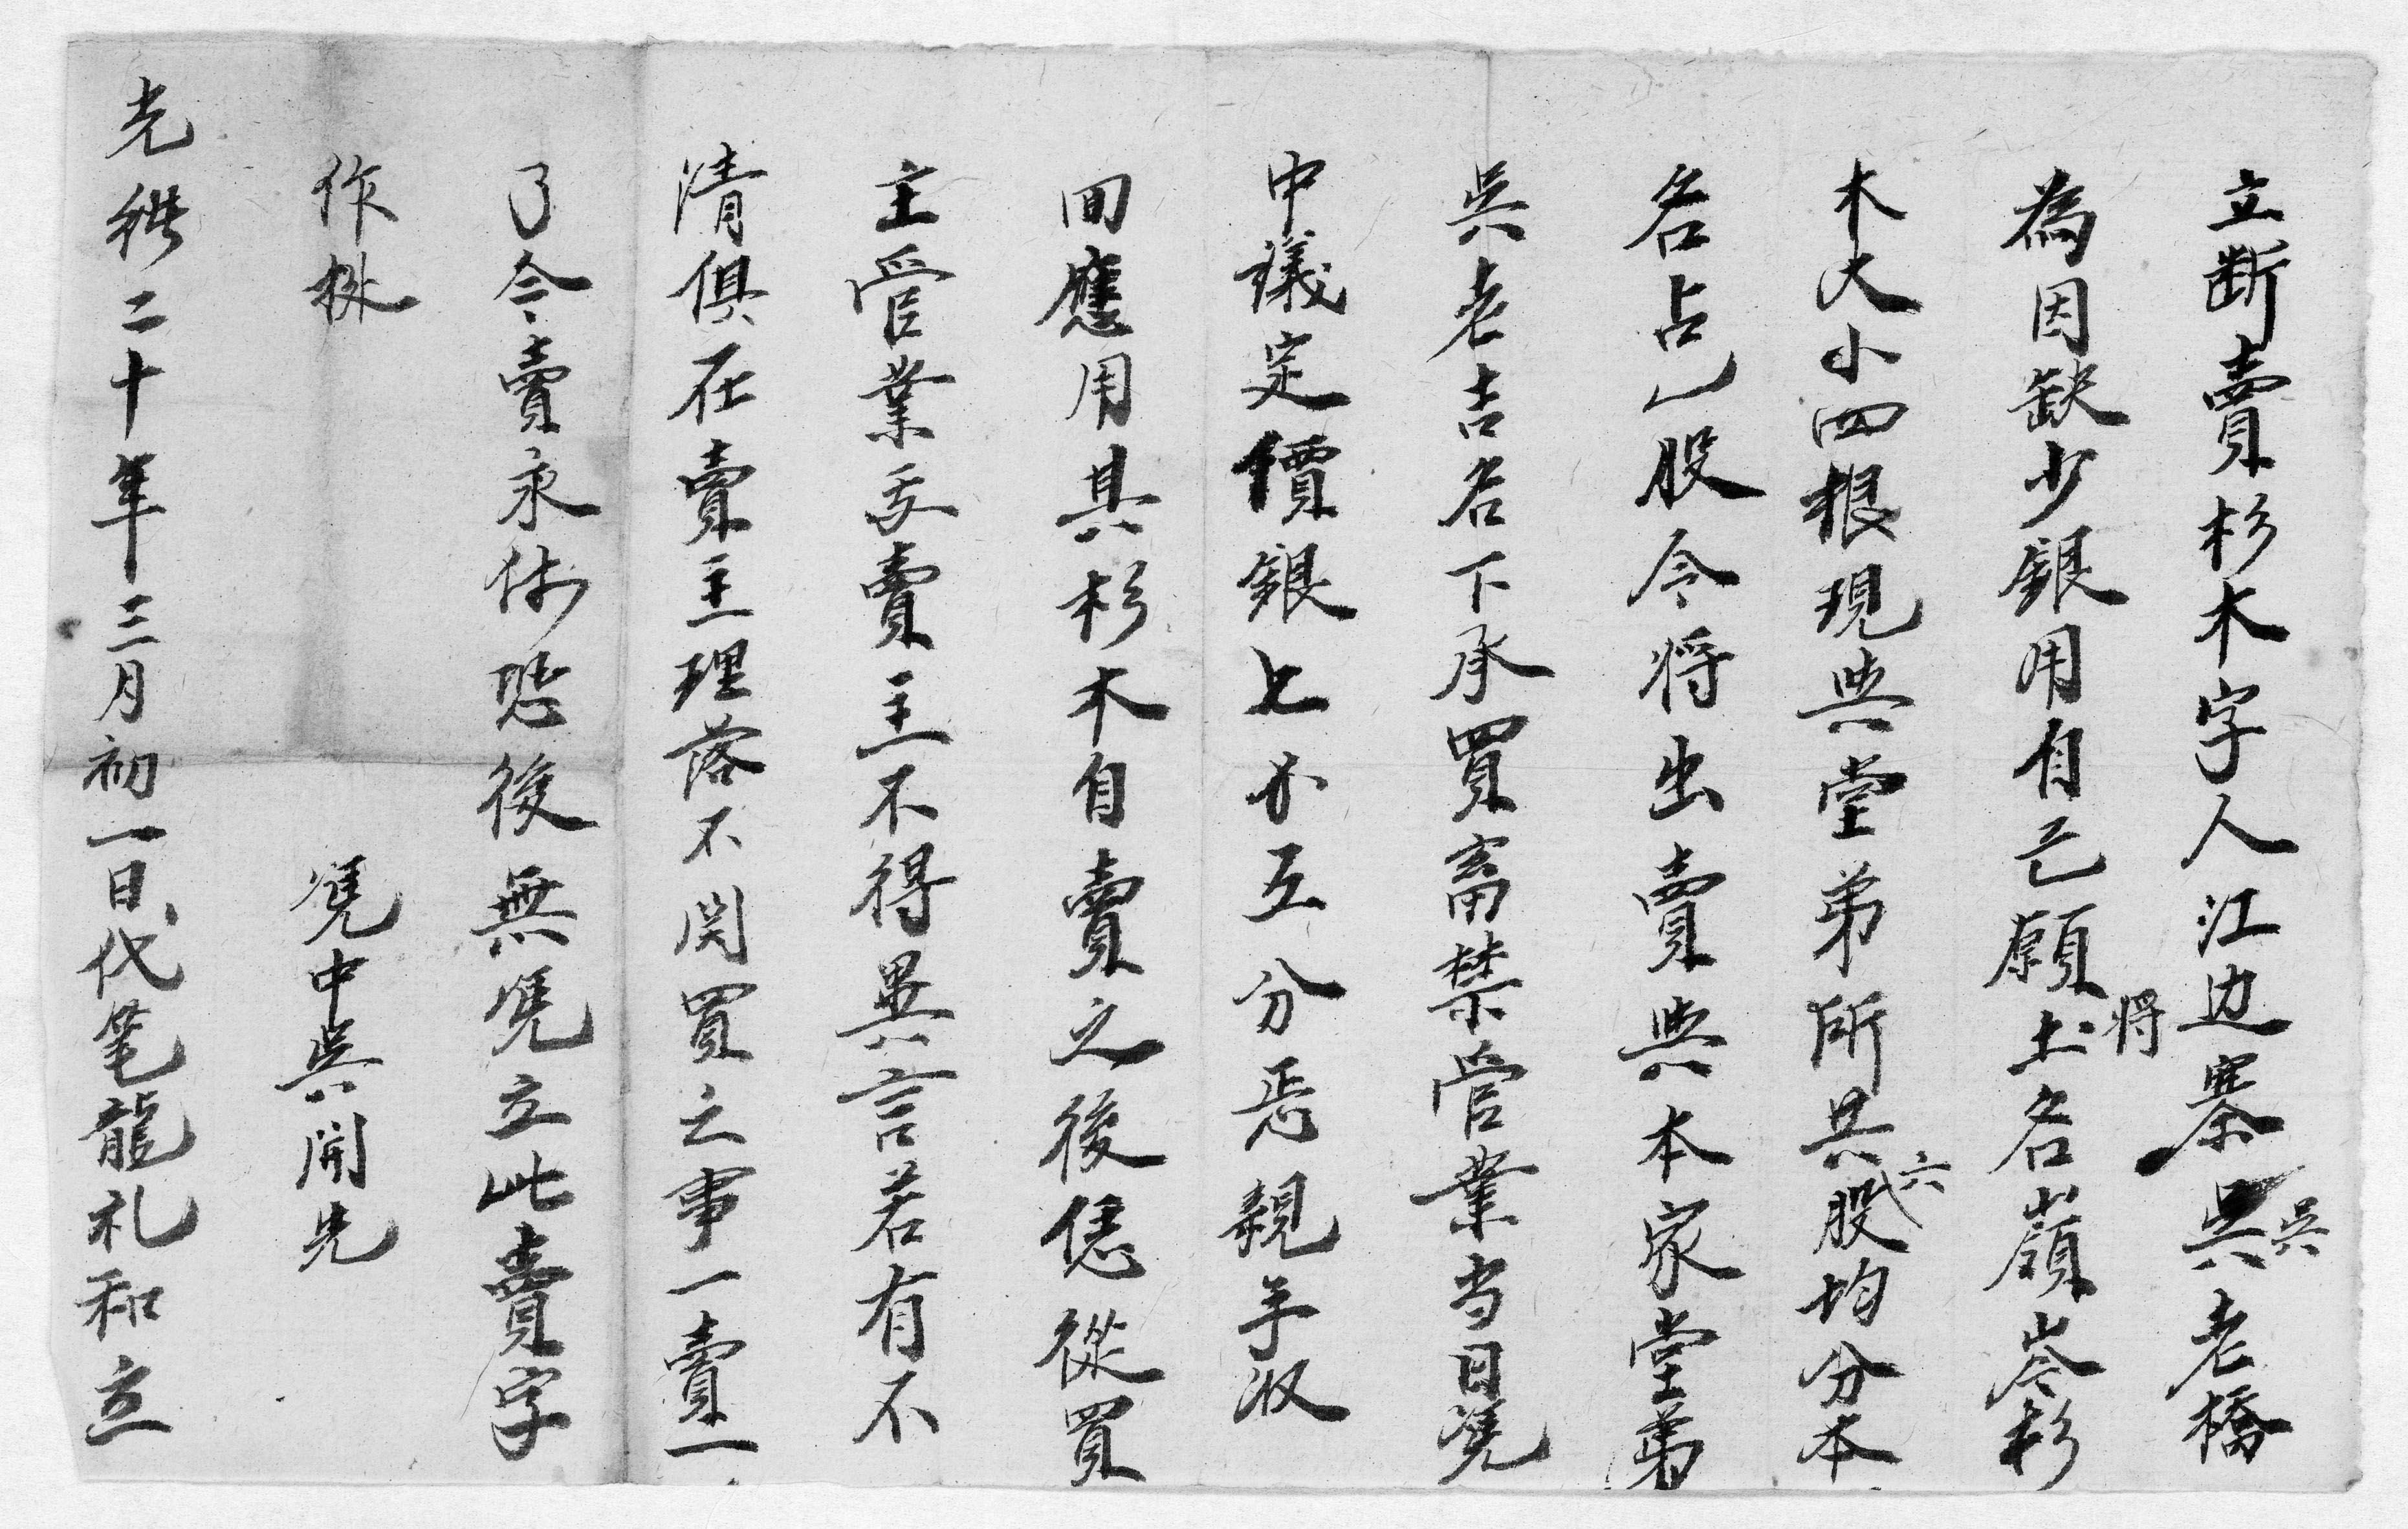 立断賣杉木字人江边寨吳老橋
為因缺少銀用自己願將土名嶺岑杉
木大小四根現與堂弟所共六股均分本
名占一股今将出賣與本家堂弟
吳老吉名下承買畜禁管業当日凴
中議定價銀七分五分㤙親手收
回應用其杉木自賣之後㤙從買
主管業賣主不得異言若有不
清俱在賣主理落不関買之事一賣一
了今賣永休恐後無凴立此賣字
作㨿
凴中吳開先
光緒二十年三月初一日代笔龍礼和立